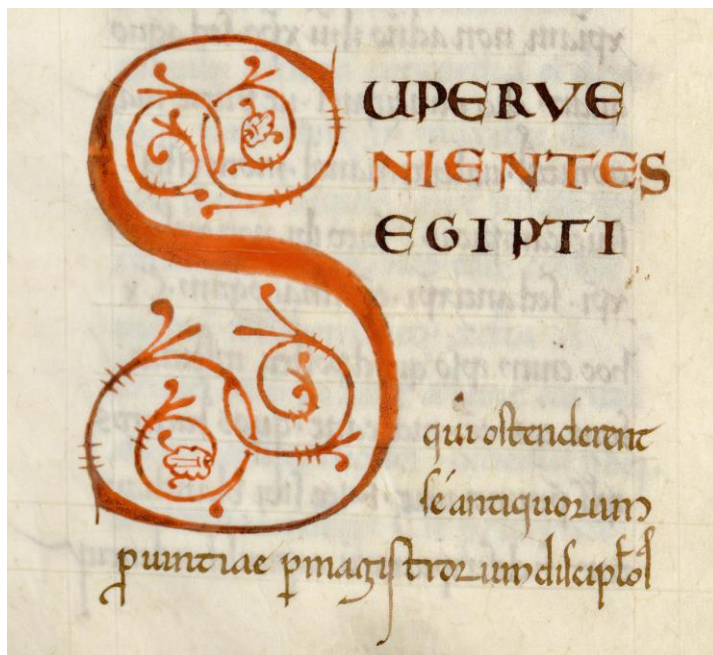 SUPERVE
NIENTES
EGIPTI
qui ostenderent
sé antiquorum
ꝓuintiae ꝑmagistrorum discipl̄os